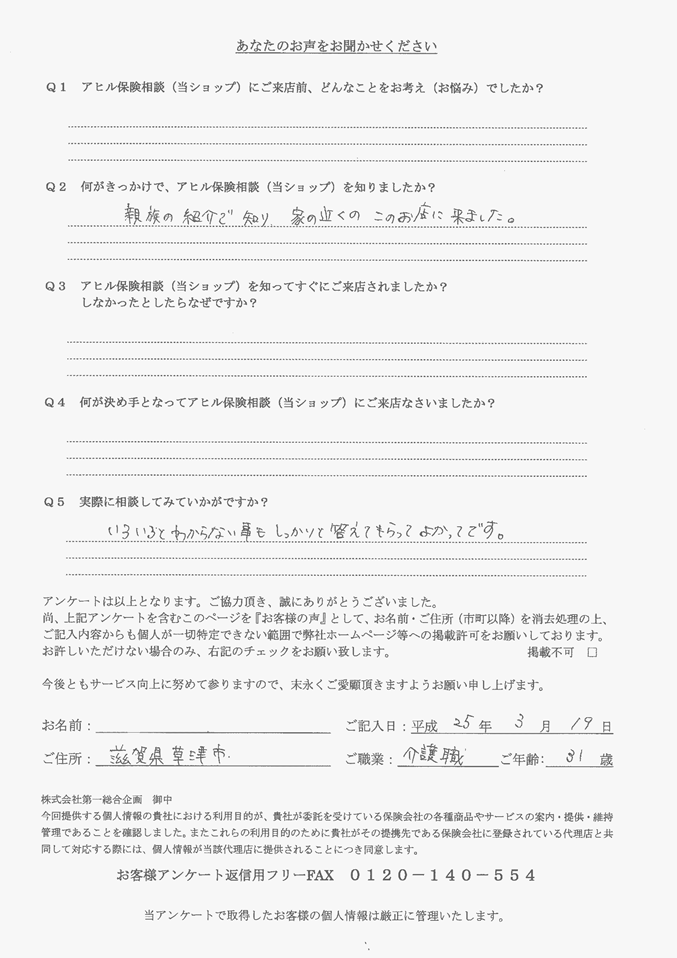 あなたのお声をお聞かせください
Q1 アヒル保険相談（当ショップ）にご来店前、どんなことをお考え（お悩み）でしたか？
Q2 何がきっかけで、アヒル保険相談（当ショップ）を知りましたか？
親族の紹介で知り、家の近くのこのお店に来ました。
Q3 アヒル保険相談（当ショップ）を知ってすぐにご来店されましたか？
しなかったとしたらなぜですか？
Q4 何が決め手となってアヒル保険相談（当ショップ）にご来店なさいましたか？
Q5 実際に相談してみていかがですか？
いろいろとわからない事もしっかりと答えてもらってよかってです。
アンケートは以上となります。ご協力頂き、誠にありがとうございました。
尚、上記アンケートを含むこのページを『お客様の声』として、お名前・ご住所（市町以降）を消去処理の上、
ご記入内容からも個人が一切特定できない範囲で弊社ホームページ等への掲載許可をお願いしております。
お許しいただけない場合のみ、右記のチェックをお願い致します。 掲載不可 □
今後ともサービス向上に努めて参りますので、末永くご愛顧頂きますようお願い申し上げます。
お名前： ご記入日：平成 25 年 3 月 19 日
ご住所： 滋賀県草津市. ご職業： 介護職 ご年齢： 31 歳
株式会社第一総合企画 御中
今回提供する個人情報の貴社における利用目的が、貴社が委託を受けている保険会社の各種商品やサービスの案内・提供・維持
管理であることを確認しました。またこれらの利用目的のために貴社がその提携先である保険会社に登録されている代理店と共
同して対応する際には、個人情報が当該代理店に提供されることにつき同意します。
お客様アンケート返信用フリーFAX 0120－140－554
当アンケートで取得したお客様の個人情報は厳正に管理いたします。